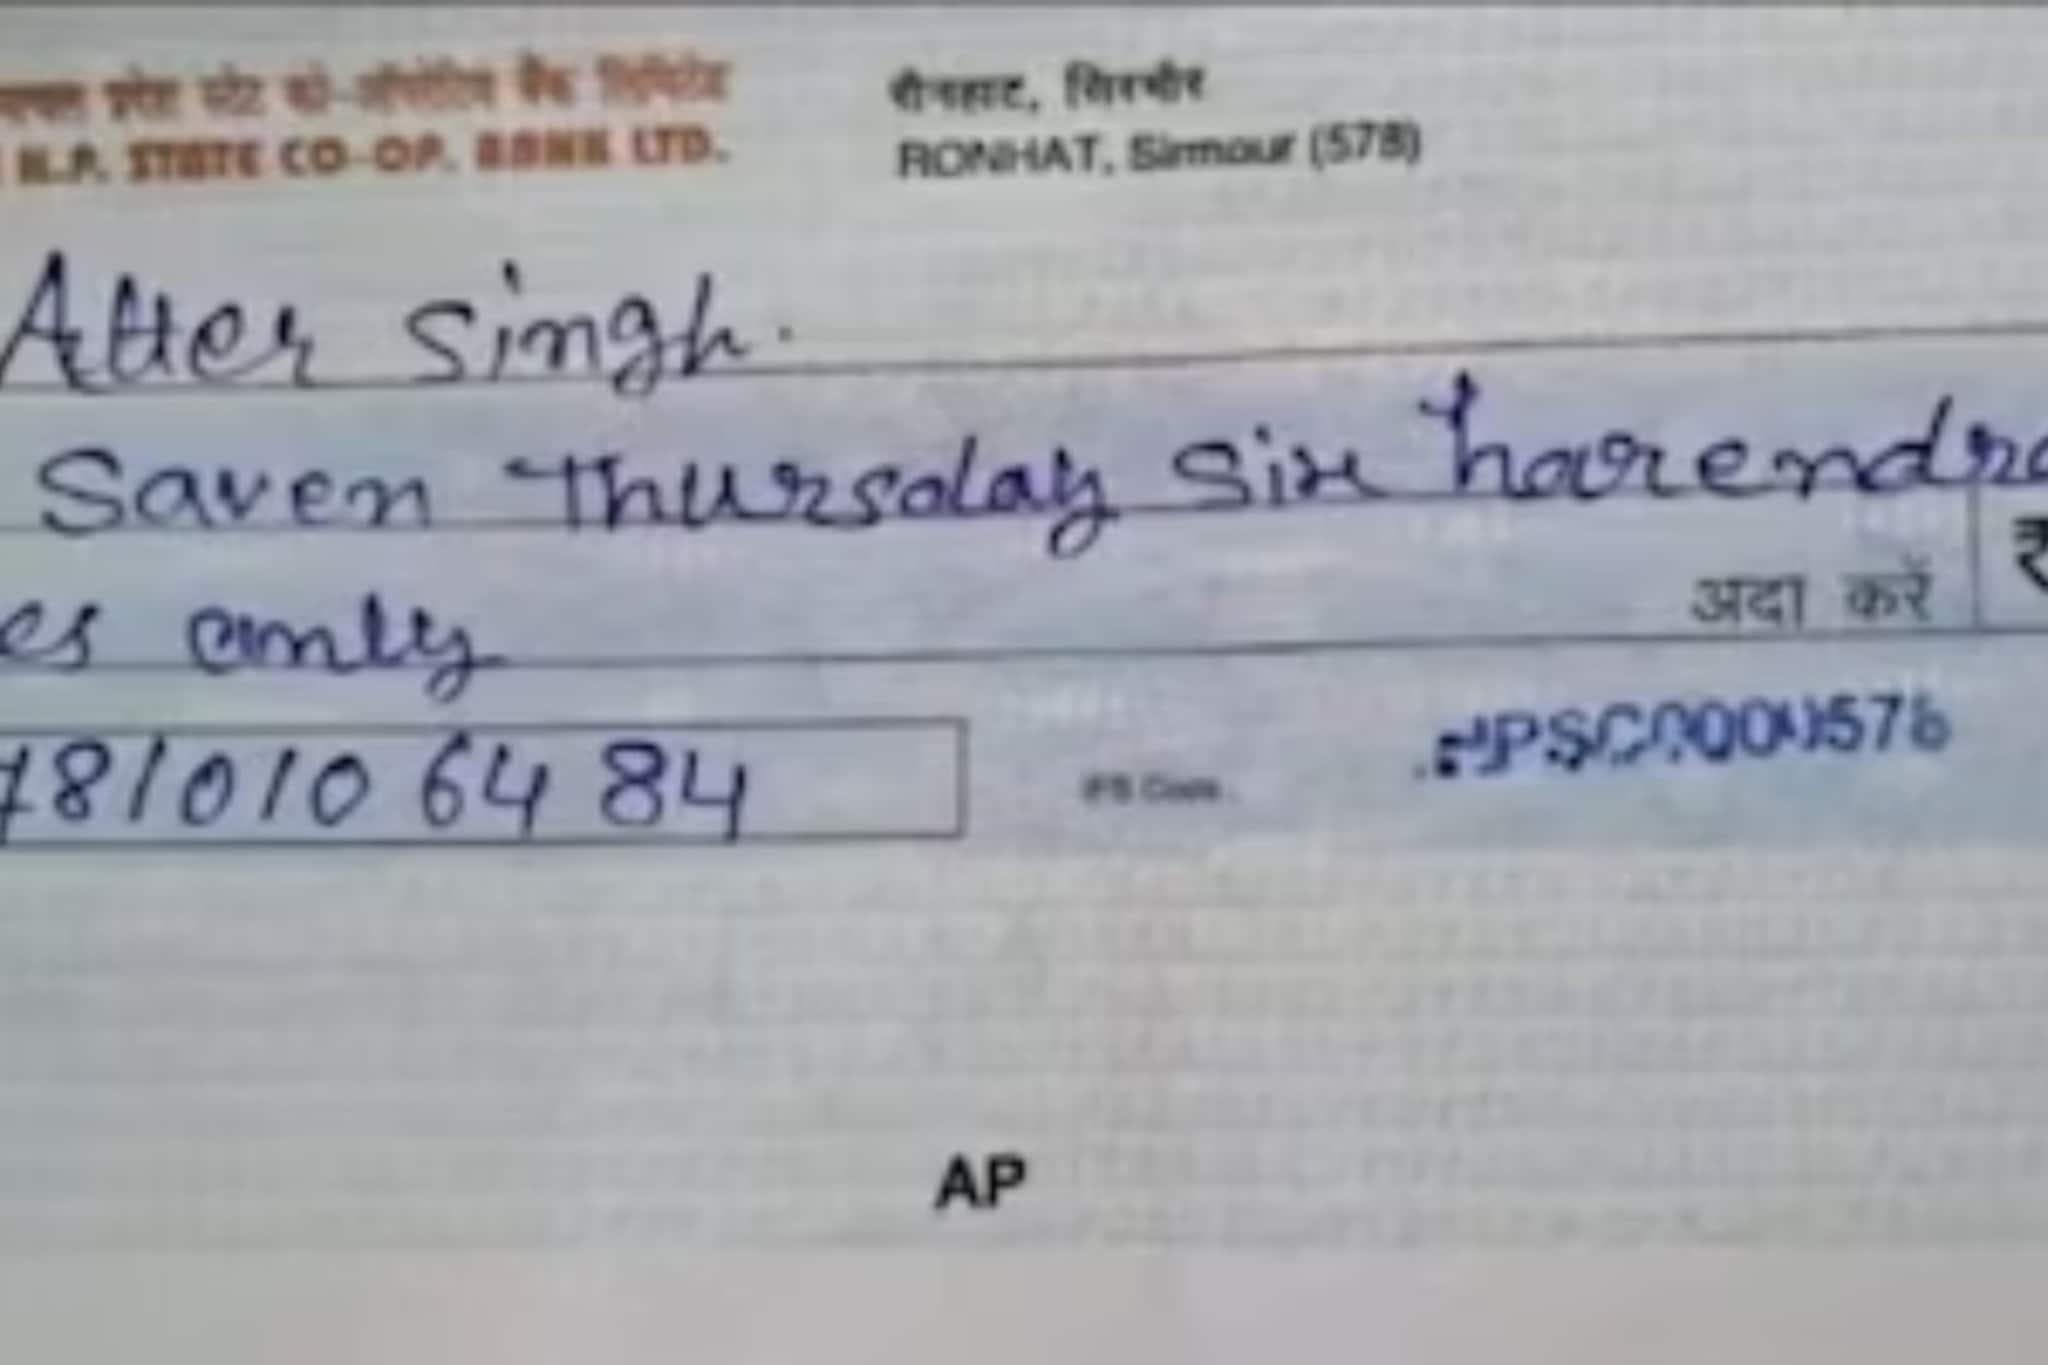 प्रदेश स्टेट को-ऑपरेटिव बैंक लिमिटेड
H.P. STATE CO-OP. BANK LTD.
रोनहाट, सिरमौर
RONHAT, Sirmour (578)
Atter Singh.
Saven Thursday six harendra
es only
अदा करें
7810106484
IFS Code.
HPSC0000578
AP